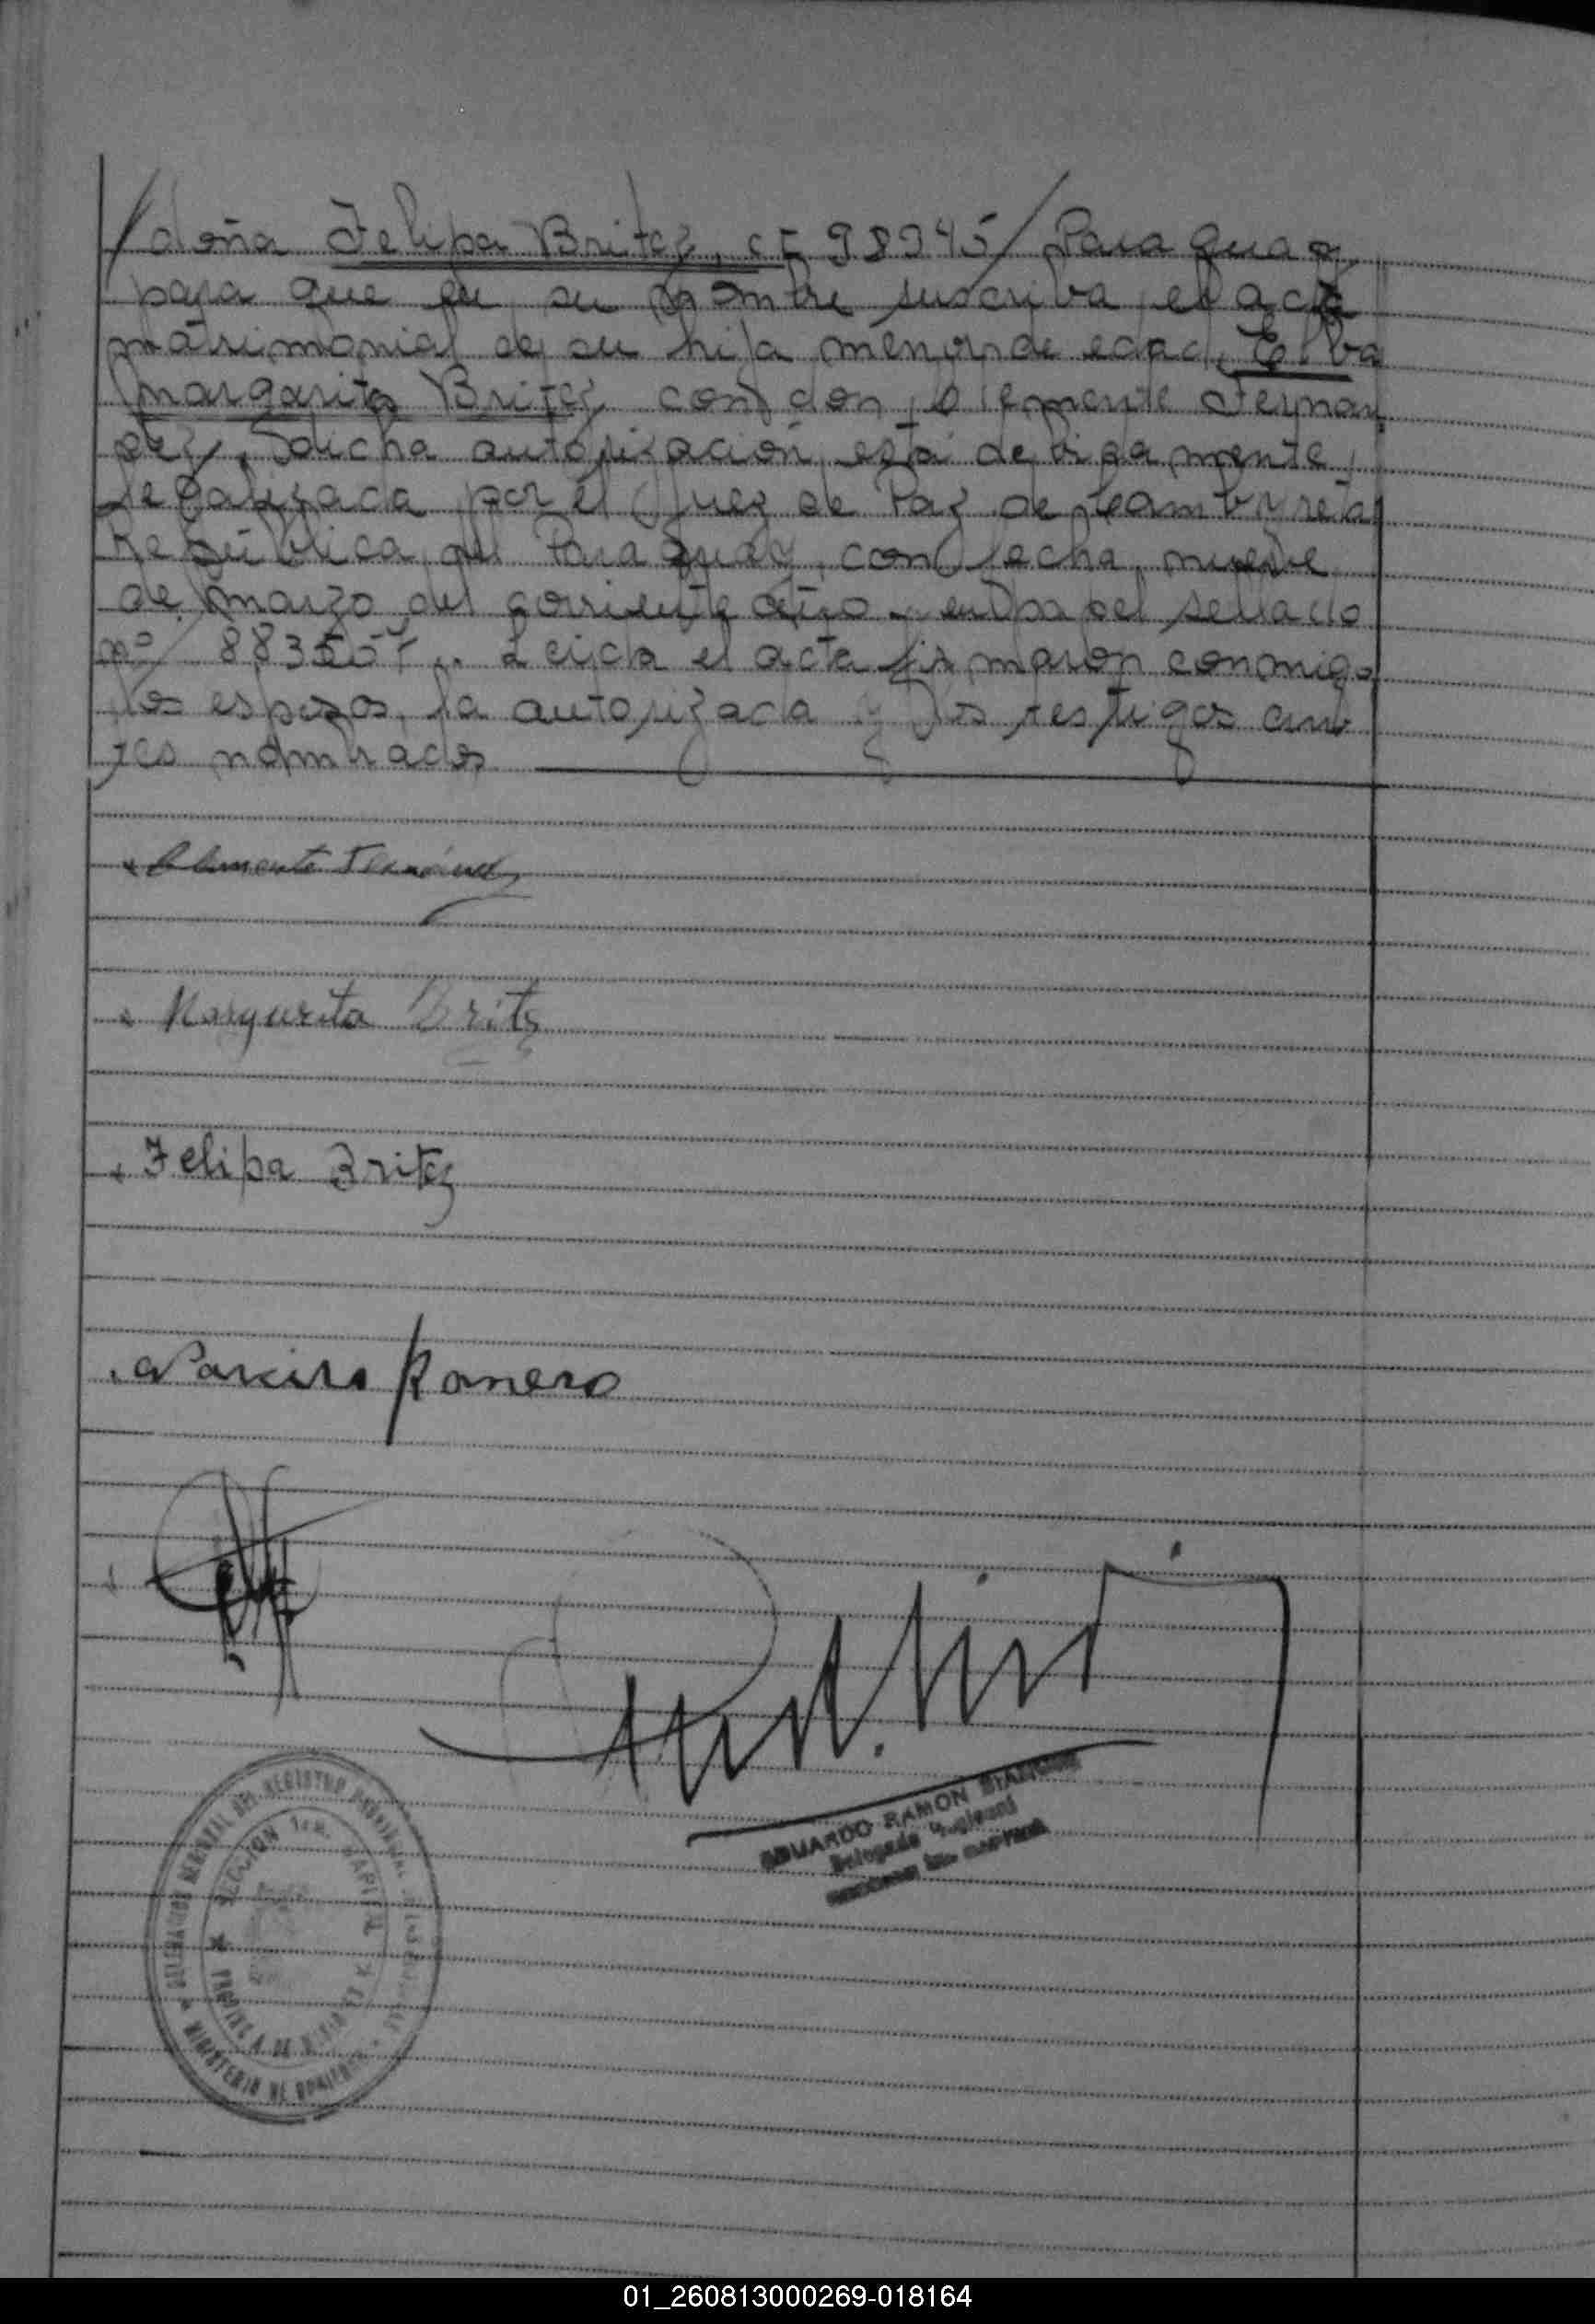 / doña Felipa Britez, c I 98945 / Paraguay
para que en su nombre suscriba el acta
matrimonial de su hija menor de edad, Elba
Margarita Britez con don Clemente Fernan
dez, dicha autorización está debidamente
legalizada por el Juez de Paz de Cambyretá
República del Paraguay, con fecha, nueve
de marzo del corriente año y en papel sellado
nº Leida el acta firmaron conmigo
los esposos, la autorizada y los testigos an
tes nombrados
Clemente Fernández
Margarita Britz
Felipa Britez
Narciso Romero
EDUARDO RAMON
Delegado
REGISTRO PROVINCIAL DE LAS PERSONAS
MINISTERIO DE GOBIERNO
SECCION 1ra. CAPITAL
PROVINCIA DE MISIONES
01_260813000269-018164